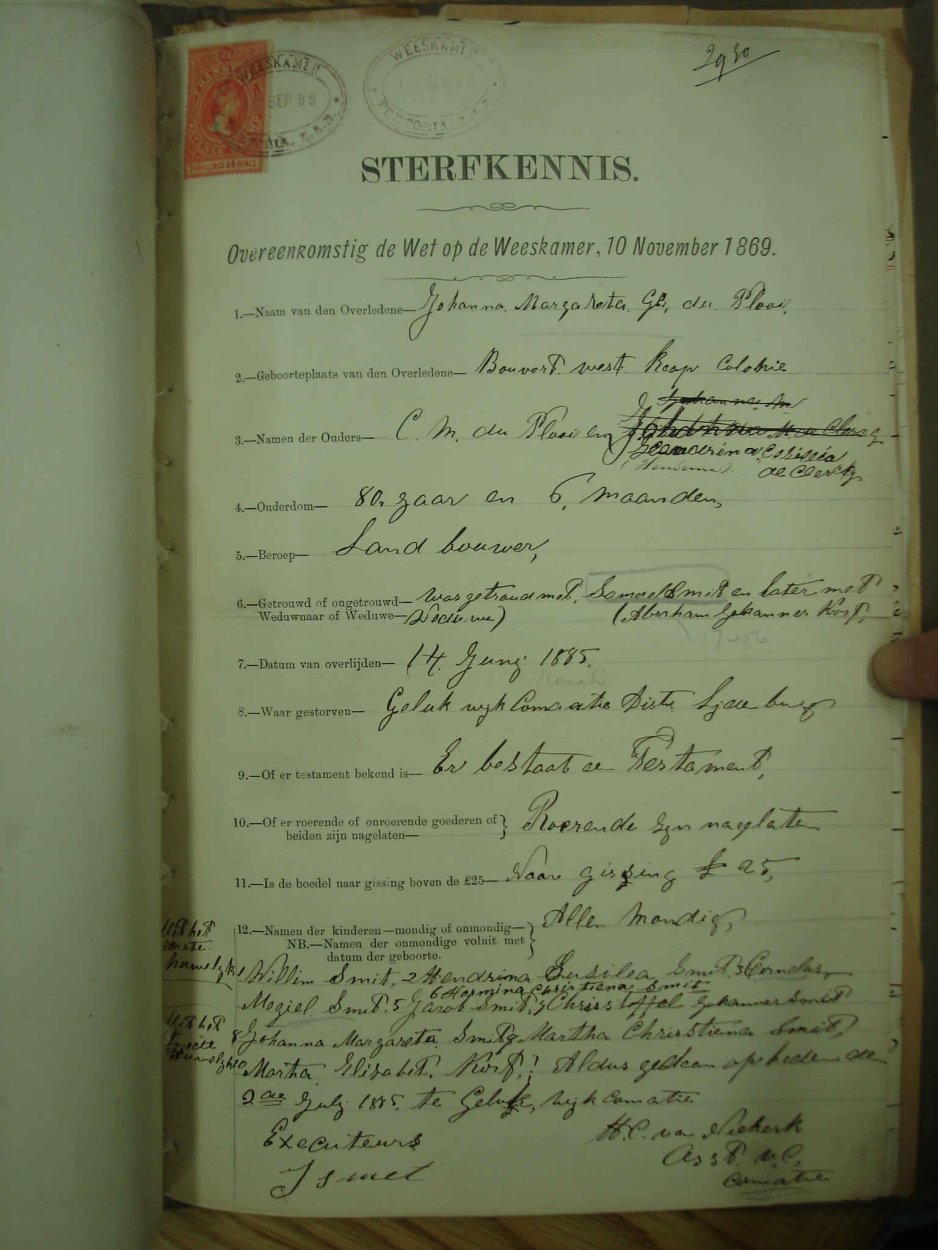 2930
WEESKAMER
SEP. 85
WEESKAMER
SEP 85
PRETORIA. Z.A.R.
STERFKENNIS.
Overeenkomstig de Wet op de Weeskamer, 10 November 1869.
1.—Naam van den Overledene— Johanna Margareta du Plooi,
2.—Geboorteplaats van den Overledene— Bouvort west Kaap Colonie
3.—Namen der Ouders— C. M. du Plooi en
de Clerk
4.—Ouderdom— 80 jaar en 6, maanden,
5.—Beroep— Land bouwer,
6.—Getrouwd of ongetrouwd— was getroud met, Samuel Smit en later met
Weduwnaar of Weduwe— Weduwe) (Aberham Johannes Korf,
19456
7.—Datum van overlijden— 14 Junij 1885.
8.—Waar gestorven— Geluk wyk Comatie Diste Lydenburg
9.—Of er testament bekend is— Er bestaat ee Testament,
10.—Of er roerende of onroerende goederen of
beiden zijn nagelaten— } Roerende zyn nagelaten
11.—Is de boedel naar gissing boven de £25— Naar gissing £ 25,
12.—Namen der kinderen—mondig of onmondig—
NB.—Namen der onmondige voluit met
datum der geboorte. } Allen Mondig,
Uit het
eerste
huwelyk
1 Willim Smit, 2 Hendrina Susilea Smit 3 Cornelas
6 Hermina Christiena Smit
Mogiel Smit. 5 Jacob Smit, 7 Christoffel Johannes Smit
Uit het
tweede
8 Johanna Margareta Smit 9 Martha Christiena Smit,
Marta Elizabet. Korf,! Aldus gedaan op heden de
2de July 1885. te Geluk, wyk Comatie
Executeurs
H. C. van Niekerk
Asst. V. C.
Comatie